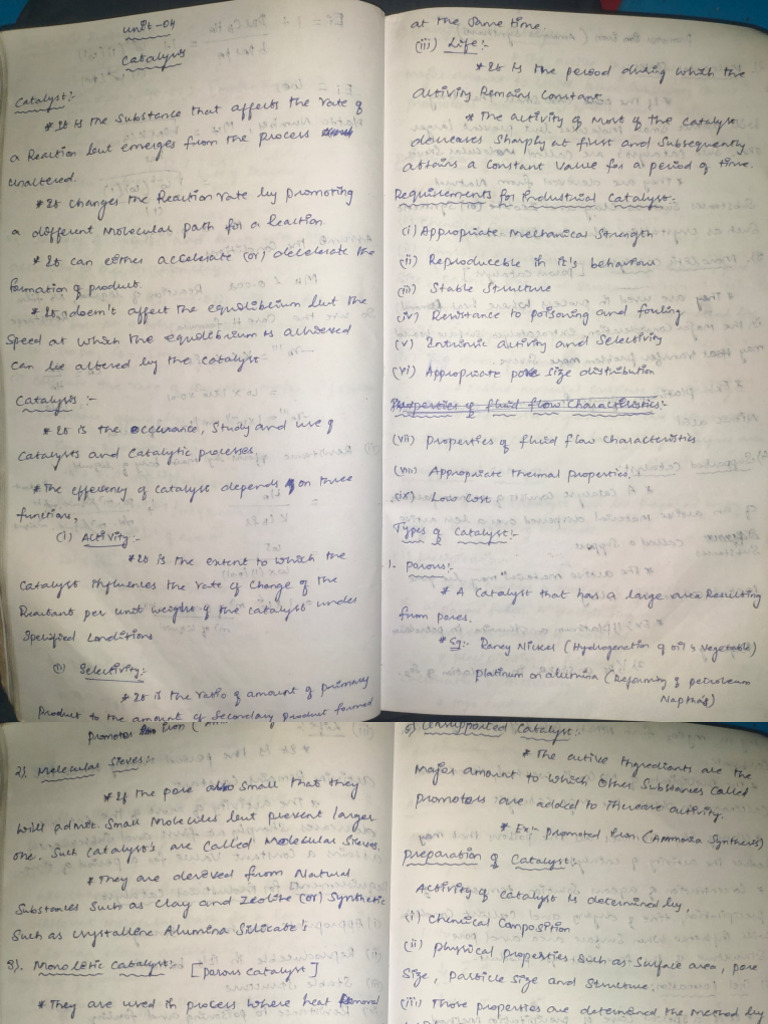 Unit-04
Catalysis
Catalyst:-
* It is the Substance that affects the rate of
a Reaction but emerges from the process
unaltered.
* It changes the Reaction rate by promoting
a different Molecular path for a Reaction.
* It can either accelerate (or) decelerate the
formation of product.
* It doesn't affect the equilibrium but the
Speed at which the equilibrium is achieved
can be altered by the catalyst
Catalysis :-
* It is the occurance, Study and use of
Catalysts and Catalytic processes.
* The effeciency of catalyst depends on three
functions,
(i) Activity:-
* It is the extent to which the
Catalyst influences the rate of change of the
Reactant per unit weight of the catalyst under
Specified Conditions
(ii) Selectivity:-
* It is the ratio of amount of primary
product to the amount of Secondary product formed
at the same time.
(iii) Life:-
* It is the period during which the
activity Remains Constant.
* The activity of most of the catalyst
decreases Sharply at first and Subsequently
attains a Constant Value for a period of time.
Requirements for Industrial Catalyst:-
(i) Appropriate Mechanical Strength
(ii) Reproduceble in it's behaviour
(iii) Stable Structure
(iv) Resistance to poisoning and fouling
(v) Intrinsic activity and Selectivity
(vi) Appropriate pore Size distribution
Properties of fluid flow Characteristics:-
(vii) Properties of fluid flow Characteristics
(viii) Appropriate thermal properties.
(ix) Low Cost
Types of Catalyst:-
1. Porous:-
* A Catalyst that has a large area Resulting
from pores.
* Eg:- Raney Nickel (Hydrogenation of oil & Vegetable)
platinum on alumina (Reforming of petroleum
Naptha)
promotor Iron
2). Molecular Sieves:-
* If the pore also Small that they
will admit Small Molecules but prevent larger
one. Such Catalyst's are Called Molecular Sieves.
* They are dereved from Natural
Substances Such as Clay and Zeolite (or) Synthetic
Such as crystallene Alumina Silicate's
3). Monoletic Catalyst:- [porous catalyst]
* They are used in process where heat
5) Unsupported Catalyst:-
* The active Ingredients are the
Major amount to which other Substances called
promotors are added to increase activity.
* Ex:- promoted Iron. (Ammonia Synthesis)
Preparation of Catalyst:-
Activity of catalyst is determined by,
(i) Chemical Composition
(ii) physical properties Such as Surface area, pore
Size, particle Size and Structure.
(iii) Those properties are determined the Method by